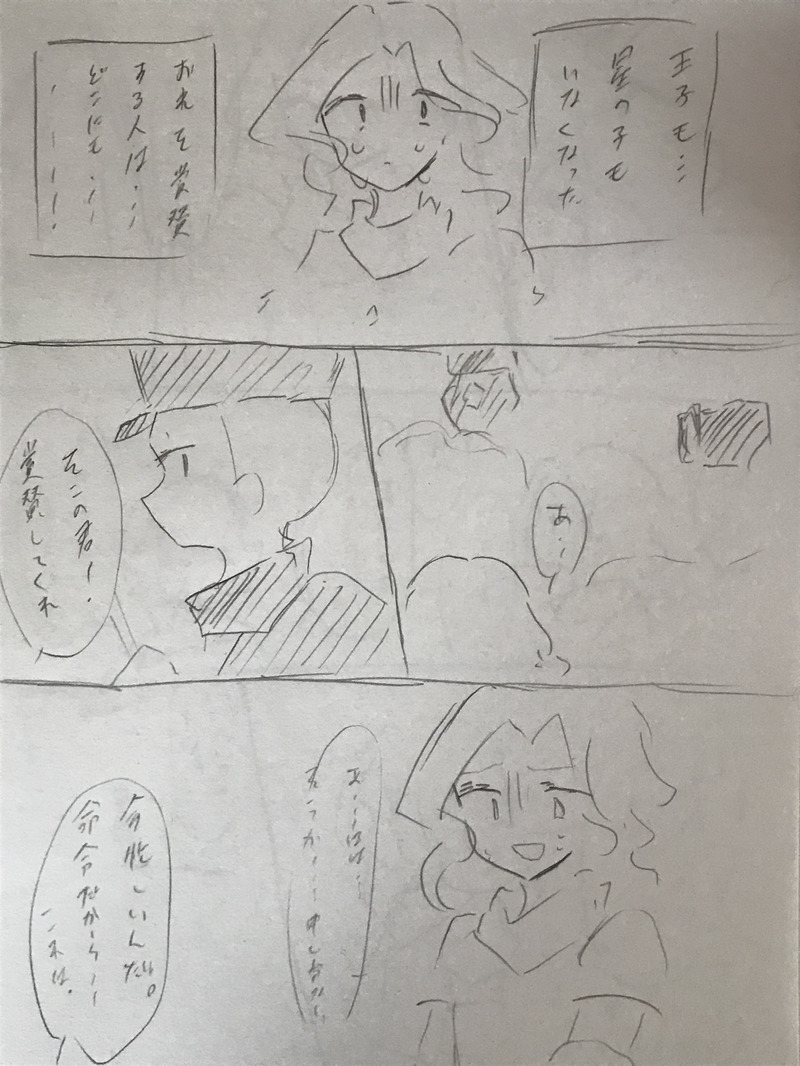 王子も…
星の子も
いなくなった
おれを賞賛
する人は…
どこにも…
あ…
そこの君!
賞賛してくれ
あ…はは…
そうか…申し訳ない
今忙しいんだ。
命令だから…
これは。